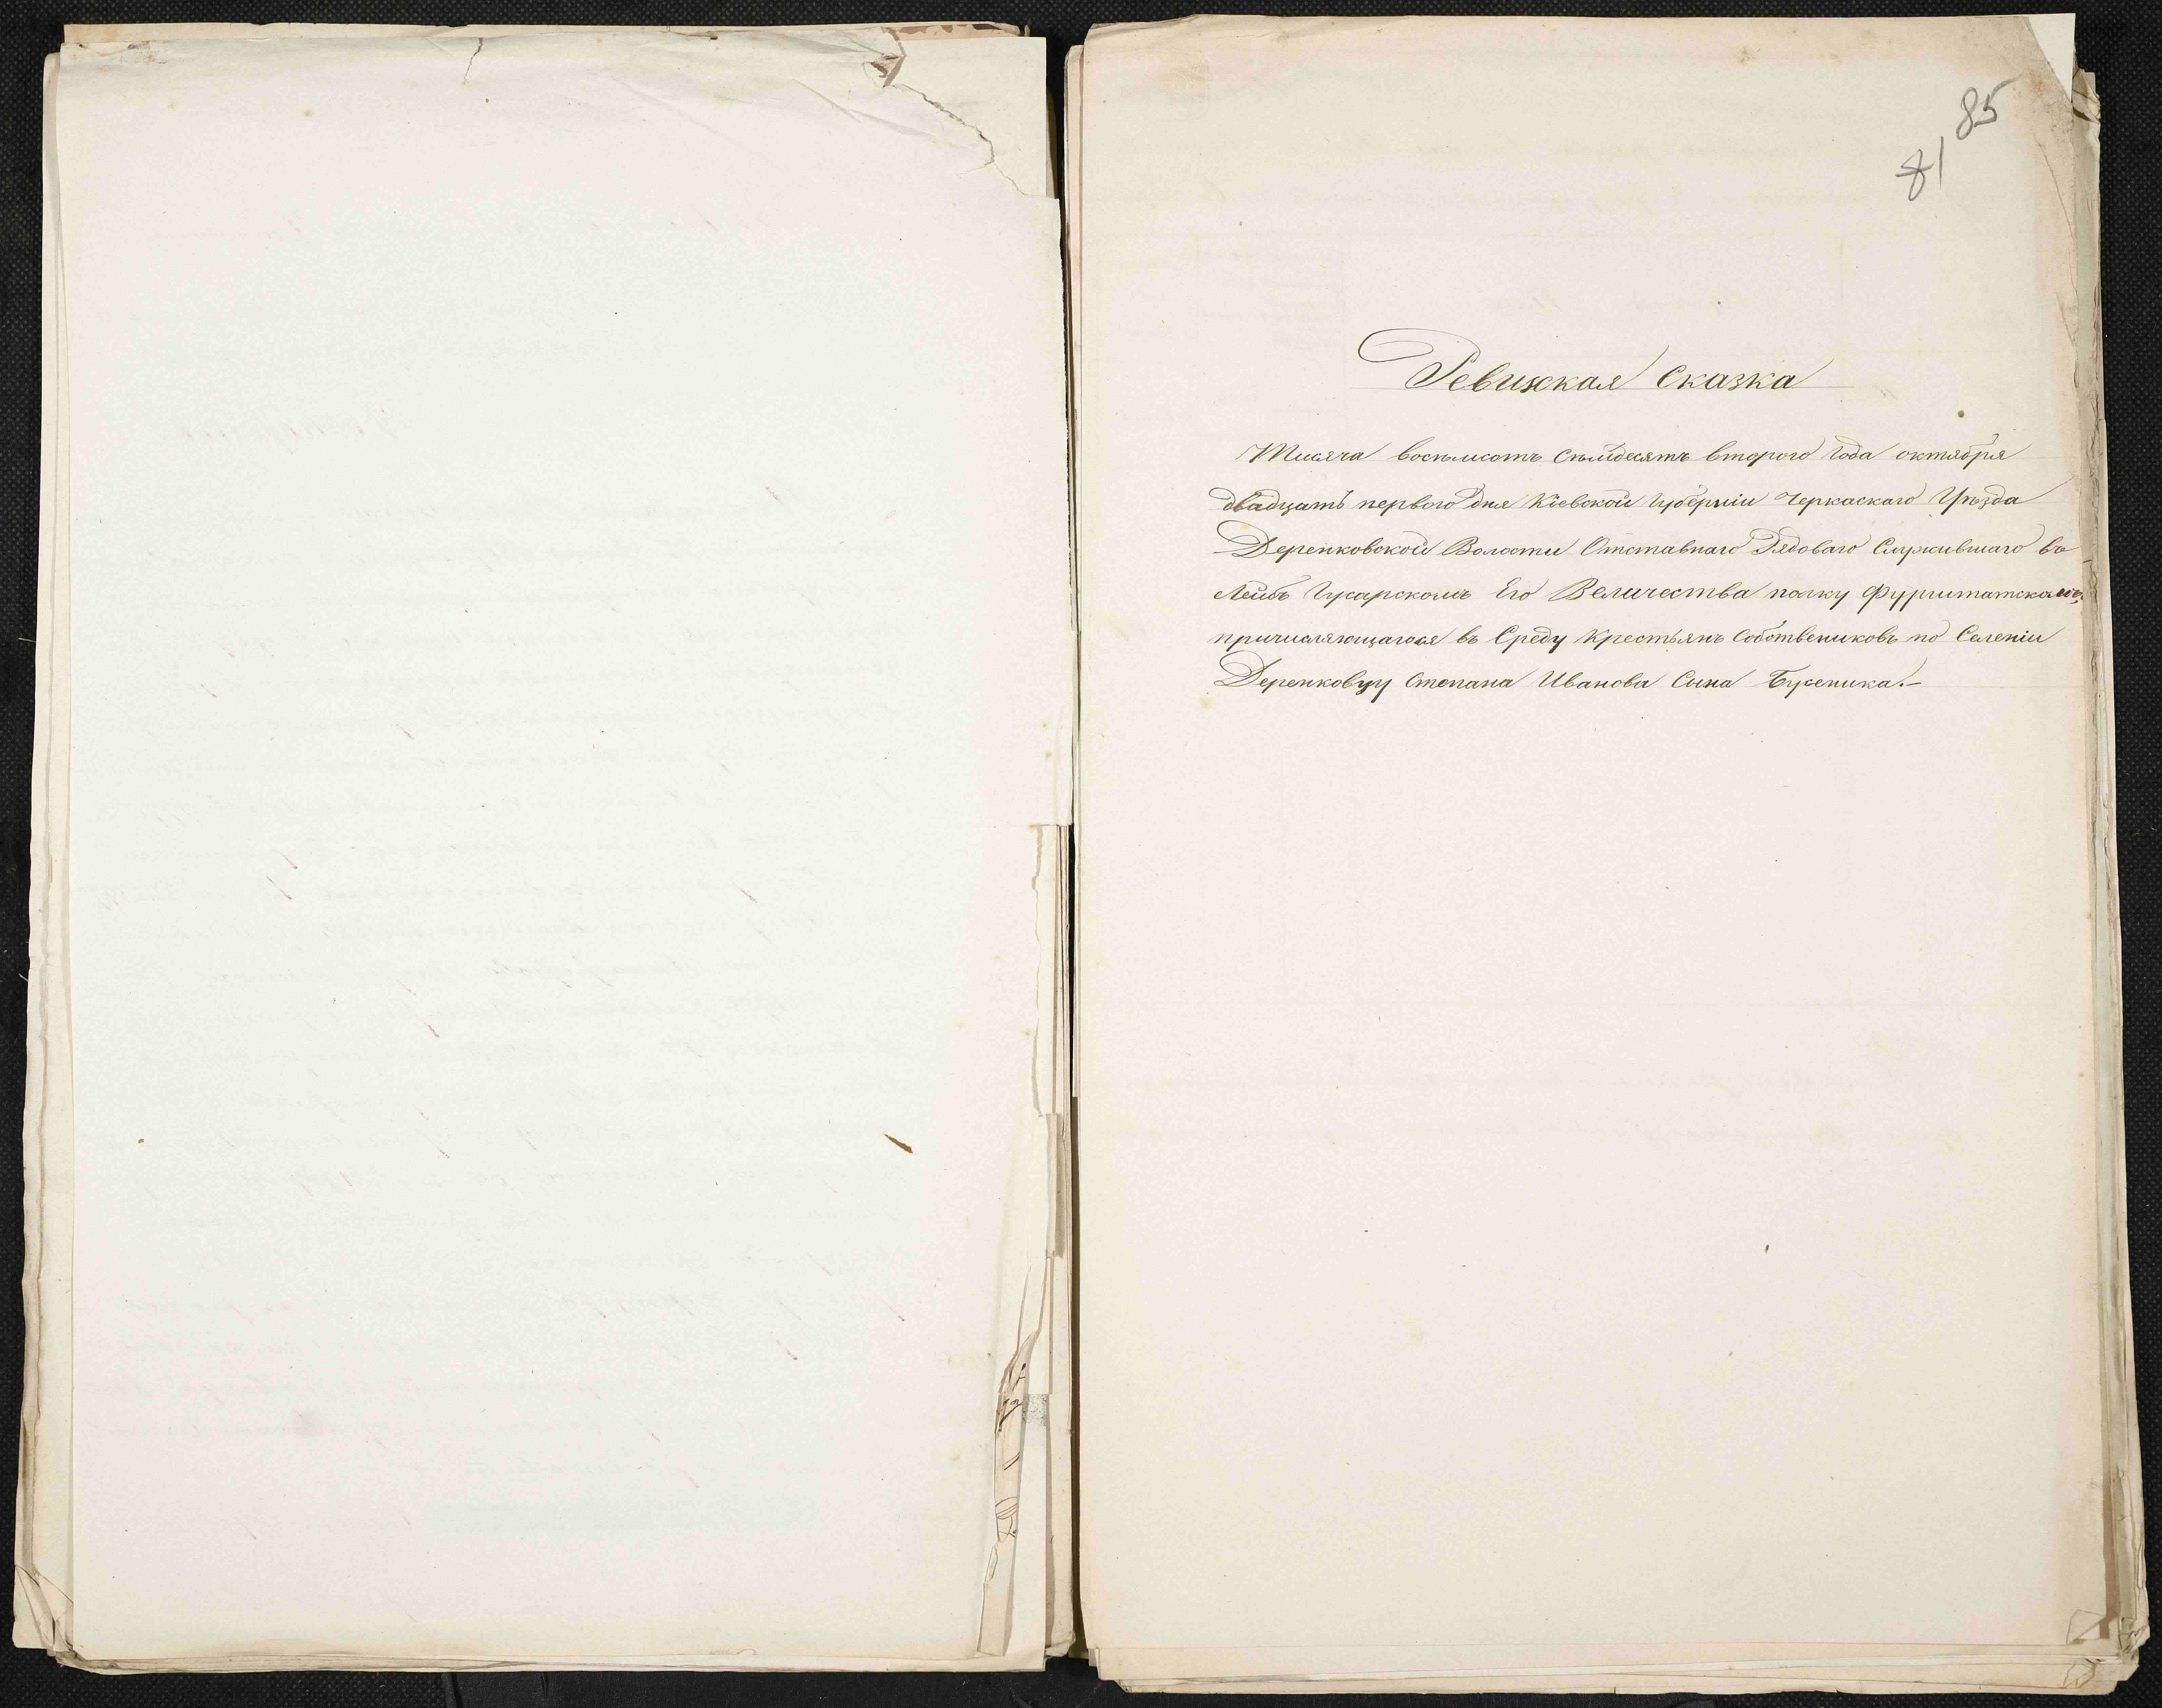 85
81
Ревизская Сказка
Тисяча восѣмсотъ Сѣмдесятъ второго Года октября
двадцатъ первого дня Кіевской Губерніи Черкаскаго Уѣзда
Деренковской Волости Отставнаго Рядоваго Служившаго въ
Лейбъ Гусарскомъ Его Величества полку Фурштатскомъ,
причисляющагося въ Среду Крестьянъ Собствениковъ по Селеніи
Деренковцу Степана Иванова Сына Бусеника.—